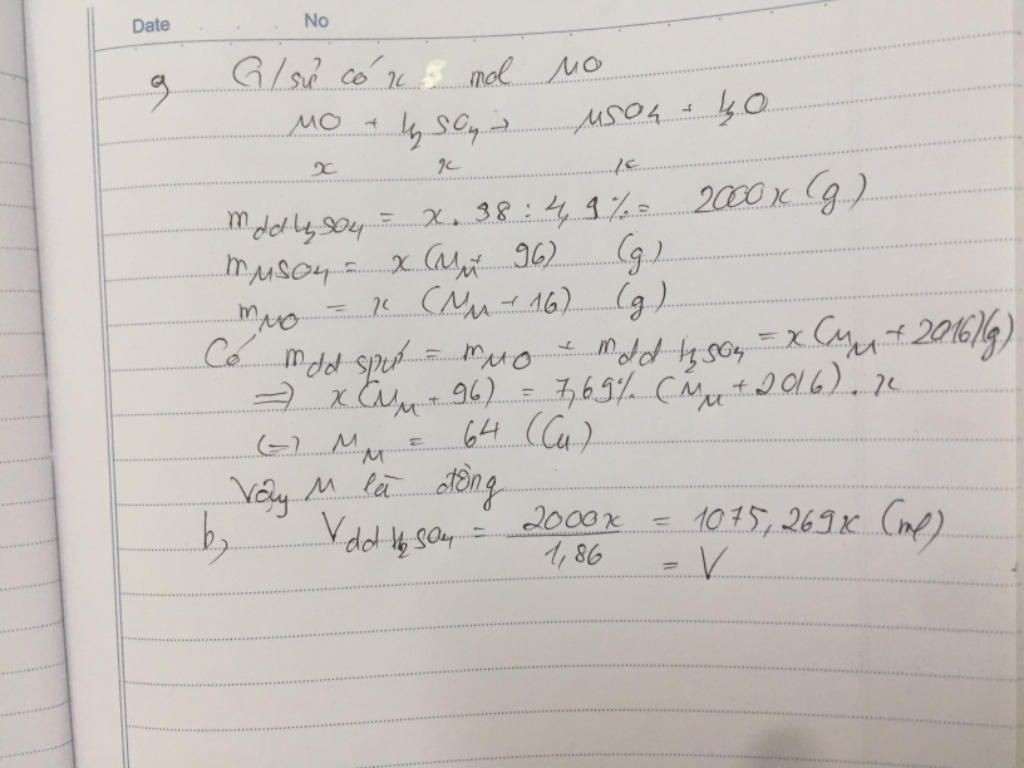 Date No
a, G/sử có x mol MO
MO + H2SO4 → MSO4 + H2O
x x x
mdd H2SO4 = x . 98 : 4,9% = 2000x (g)
mMSO4 = x (MM + 96) (g)
mMO = x (MM + 16) (g)
Có mdd spứ = mMO + mdd H2SO4 = x (MM + 2016) (g)
=> x (MM + 96) = 7,69% (MM + 2016) . x
(=) MM = 64 (Cu)
Vậy M là đồng
b, Vdd H2SO4 = 2000x / 1,86 = 1075,269x (ml)
= V